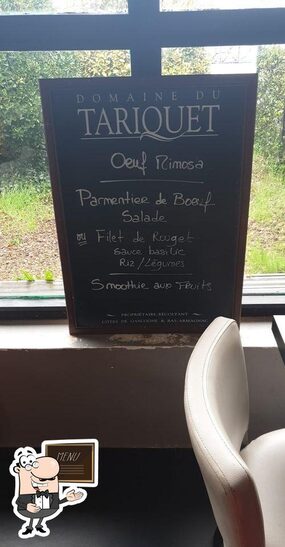 DOMAINE DU
TARIQUET
Oeuf Mimosa
Parmentier de Boeuf
Salade
ou Filet de Rouget
sauce basilic
Riz / Légumes
Smoothie aux Fruits
PROPRIÉTAIRE-RÉCOLTANT
CÔTES DE GASCOGNE & BAS-ARMAGNAC
MENU